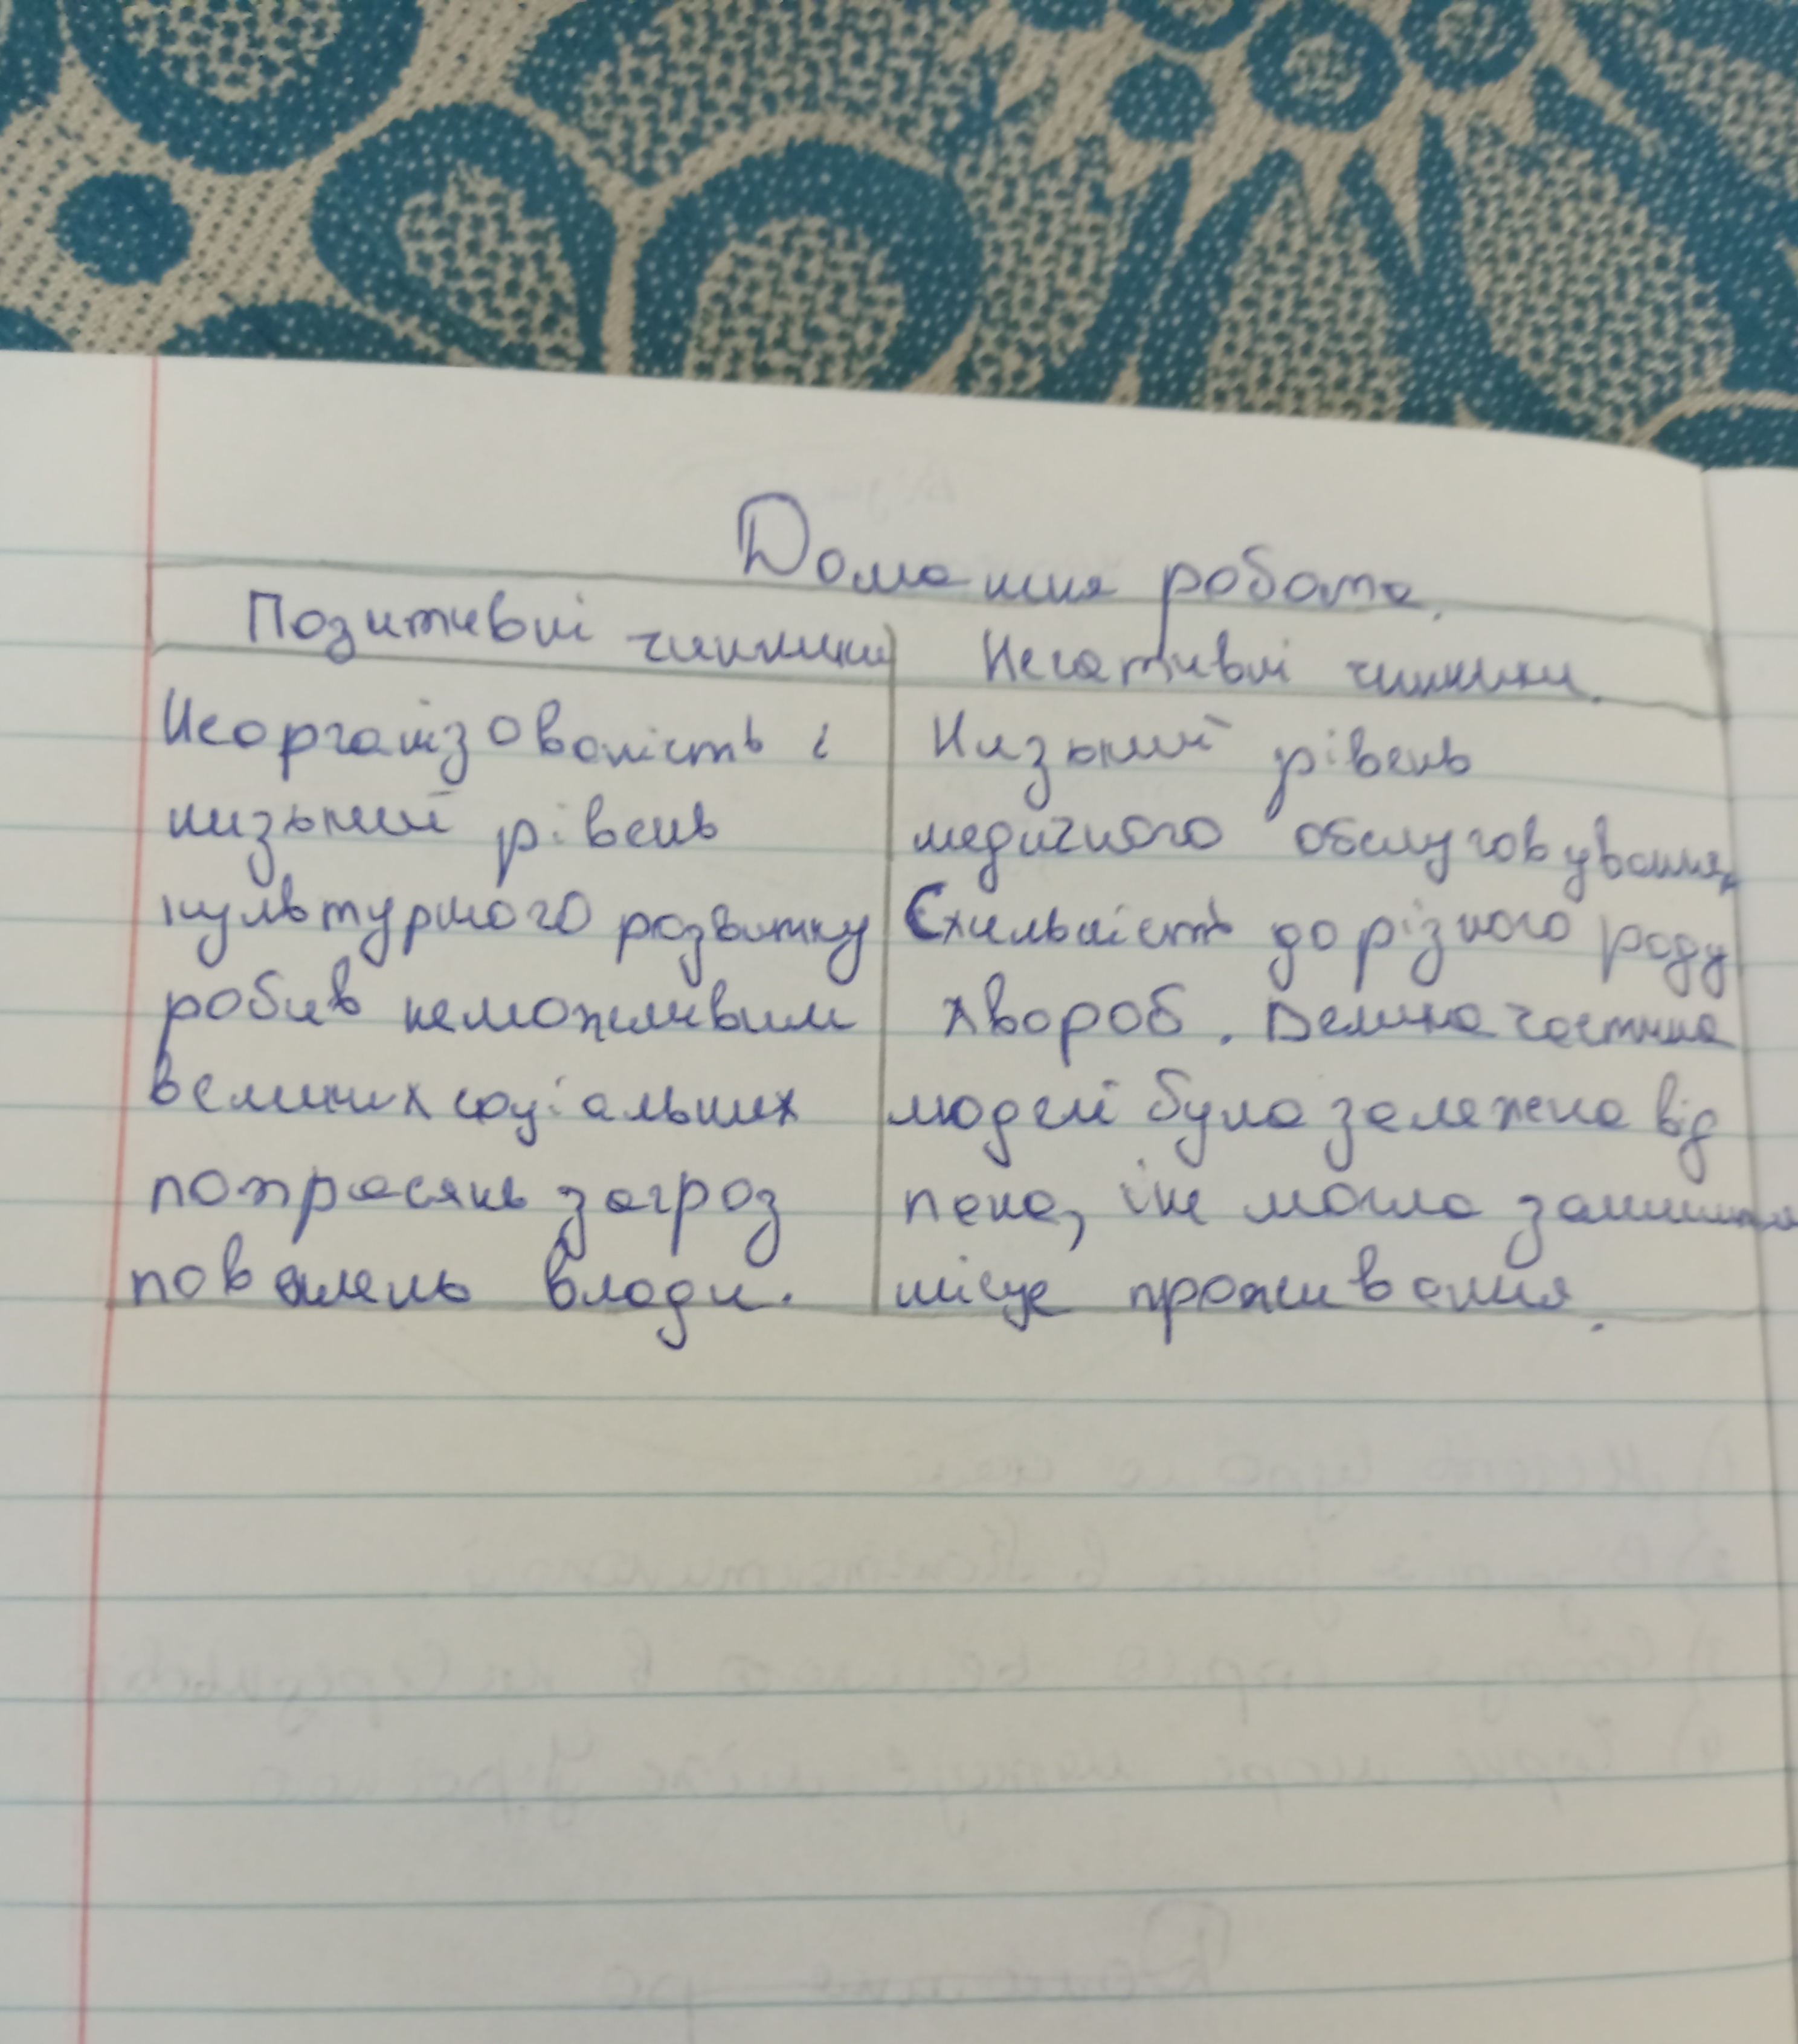 Домашня робота.
Позитивні чинники Негативні чинники.
Неорганізованість і
низький рівень
культурного розвитку
робив неможливим
великих соціальних
потрясянь загроз
повалень влади.
Низький рівень
медичного обслуговування,
Схильність до різного роду
хвороб. Велика частина
людей була залежена від
пана, і не могла залишити
місце проживання.